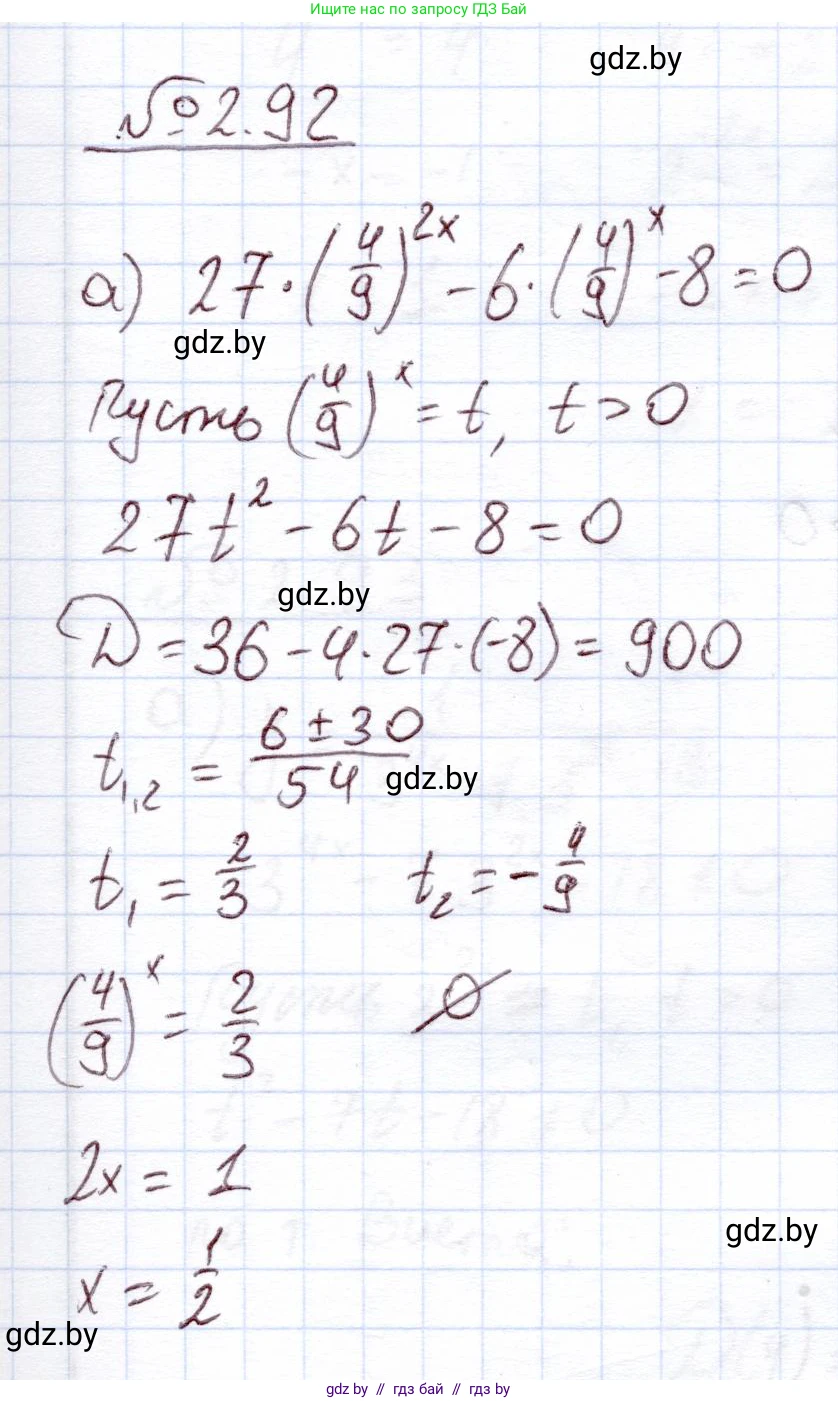 Ищите нас по запросу ГДЗ Бай
gdz.by
№ 2.92
а) 27·(4/9)^2x - 6·(4/9)^x - 8 = 0
gdz.by
Пусть (4/9)^x = t, t > 0
27t² - 6t - 8 = 0
gdz.by
D = 36 - 4·27·(-8) = 900
t₁,₂ = (6 ± 30)/54
gdz.by
t₁ = 2/3 t₂ = -4/9
(4/9)^x = 2/3 ∅
2x = 1
gdz.by
x = 1/2
gdz.by
gdz by // гдз бай // gdz by